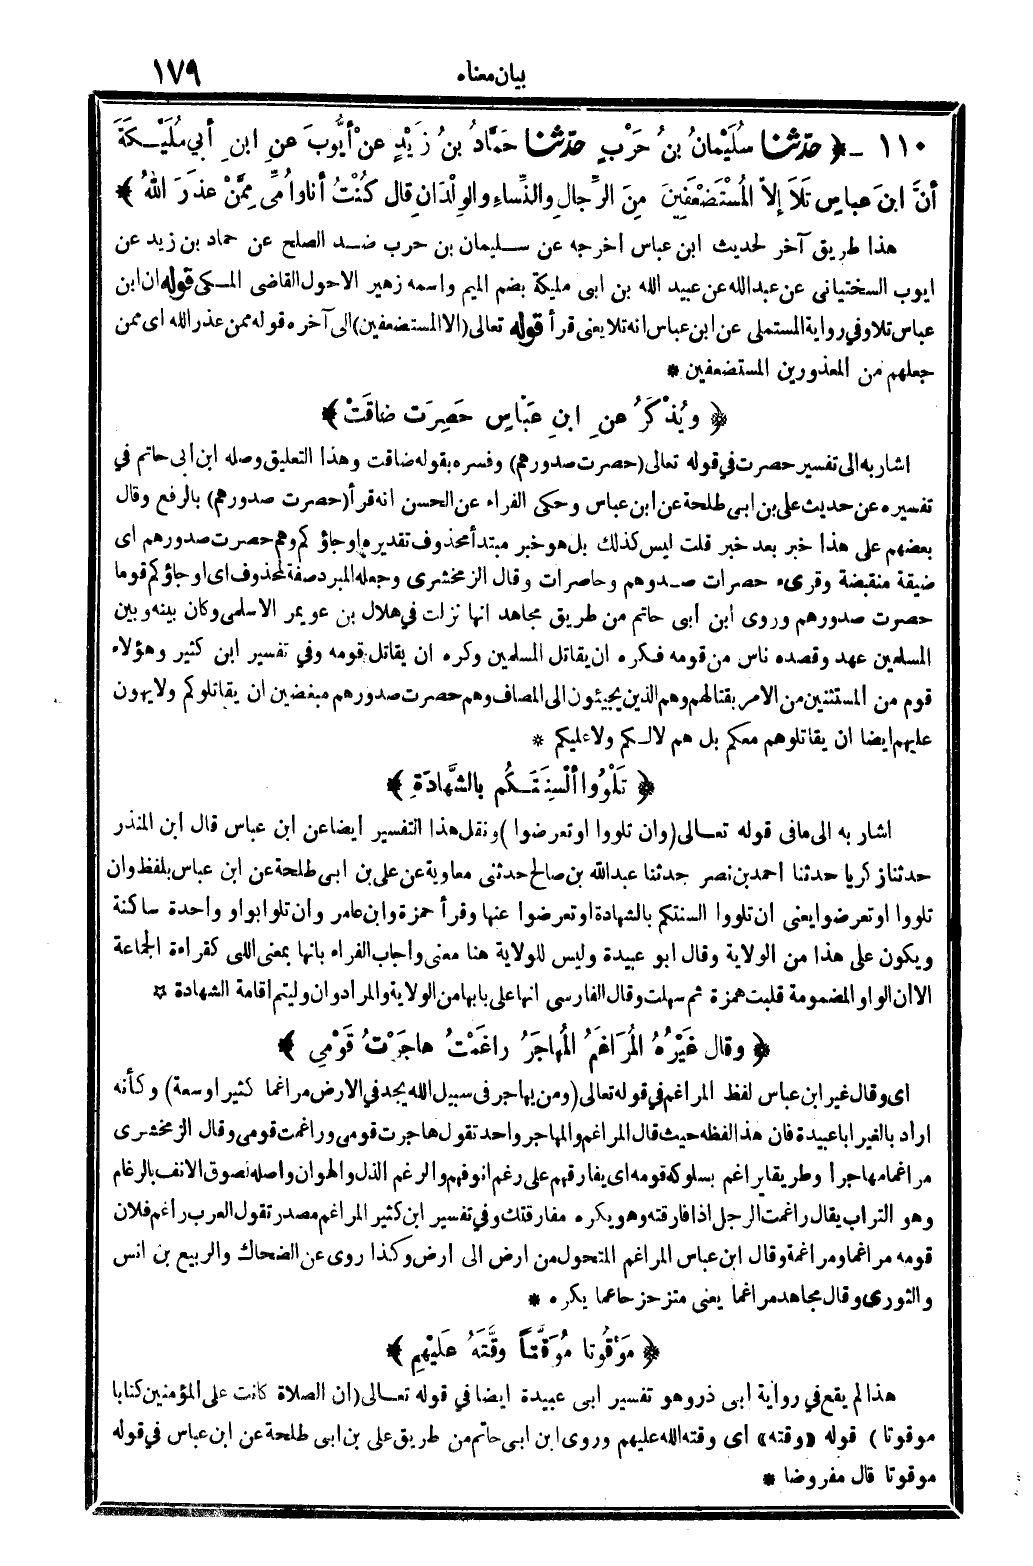 بيان معناه ١٧٩
١١٠ - ﴿ حدّثنا سُلَيْمانُ بنُ حَرْبٍ حدّثنا حَمَّادُ بنُ زَيْدٍ عنْ أيُّوبَ عنِ ابنِ أبي مُلَيْكَةَ
أنَّ ابنَ عباسٍ تَلاَ إلاَّ المُسْتَضْعَفِينَ مِنَ الرِّجالِ والنِّساءِ والوِلْدَانِ قال كُنْتُ أنا وأُمِّي مِمَّنْ عذَرَ اللهُ ﴾
هذا طريق آخر لحديث ابن عباس اخرجه عن سليمان بن حرب ضد الصلح عن حماد بن زيد عن
ايوب السختيانى عن عبدالله عن عبيد الله بن ابى مليكة بضم الميم واسمه زهير الاحول القاضى المكى قوله ان ابن
عباس تلا وفي رواية المستملى عن ابن عباس انه تلا يعنى قرأ قوله تعالى (الا المستضعفين) الى آخره قوله ممن عذر الله اى ممن
جعلهم من المعذورين المستضعفين *
﴿ ويُذْكَرُ عنِ ابنِ عَبَّاسٍ حَصِرَت ضاقَتْ ﴾
اشار به الى تفسير حصرت في قوله تعالى (حصرت صدورهم) وفسره بقوله ضاقت وهذا التعليق وصله ابن ابى حاتم في
تفسيره عن حديث على بن ابى طلحة عن ابن عباس وحكى الفراء عن الحسن انه قرأ (حصرت صدورهم) بالرفع وقال
بعضهم على هذا خبر بعد خبر قلت ليس كذلك بل هو خبر مبتدأ محذوف تقديره اوجاؤكم وهم حصرت صدورهم اى
ضيقة منقبضة وقرىء حصرات صدوهم وحاصرات وقال الزمخشرى وجعله المبرد صفة لمحذوف اى اوجاؤكم قوما
حصرت صدورهم وروى ابن أبى حاتم من طريق مجاهد انها نزلت في هلال بن عويمر الاسلمى وكان بينه وبين
المسلمين عهد وقصده ناس من قومه فكره ان يقاتل المسلمين وكره ان يقاتل قومه وفي تفسير ابن كثير وهؤلاء
قوم من المستثنين من الامر بقتالهم وهم الذين يجيئون الى المصاف وهم حصرت صدورهم مبغضين ان يقاتلوكم ولا يهون
عليهم ايضا ان يقاتلوهم معكم بل هم لا لكم ولا عليكم *
﴿ تَلْوُوا ألْسِنَتَكُم بالشَّهَادَةِ ﴾
اشار به الى مافى قوله تعالى (وان تلووا اوتعرضوا) ونقل هذا التفسير أيضا عن ابن عباس قال ابن المنذر
حدثنا زكريا حدثنا احمد بن نصر حدثنا عبدالله بن صالح حدثنى معاوية عن على بن ابى طلحة عن ابن عباس بلفظ وان
تلووا اوتعرضوا يعنى ان تلووا السنتكم بالشهادة اوتعرضوا عنها وقرأ حمزة وابن عامر وان تلوا بواو واحدة ساكنة
ويكون على هذا من الولاية وقال ابو عبيدة وليس للولاية هنا معنى وأجاب الفراء بانها بمعنى اللى كقراءة الجماعة
الا أن الواو المضمومة قلبت همزة ثم سهلت وقال الفارسى انها على بابها من الولاية والمراد وان وليتم اقامة الشهادة *
﴿ وقال غَيْرُهُ المُرَاغَمُ المُهاجَرُ راغَمْتُ هاجَرْتُ قَوْمِي ﴾
اى وقال غير ابن عباس لفظ المراغم في قوله تعالى (ومن يهاجر فى سبيل الله يجد في الارض مراغما كثيرا وسعة) وكأنه
اراد بالغير اباعبيدة فان هذا لفظه حيث قال المراغم والمهاجر واحد تقول هاجرت قومى وراغمت قومى وقال الزمخشرى
مراغما مهاجرا وطريقا يراغم بسلوكه قومه اى يفارقهم على رغم انوفهم والرغم الذل والهوان واصله لصوق الانف بالرغام
وهو التراب يقال راغمت الرجل اذا فارقته وهو يكره مفارقتك وفي تفسير ابن كثير المراغم مصدر تقول العرب راغم فلان
قومه مراغما ومراغمة وقال ابن عباس المراغم المتحول من ارض الى ارض وكذا روى عن الضحاك والربيع بن انس
والثورى وقال مجاهد مراغما يعنى متزحزحا عما يكره *
﴿ مَوْقُوتا مُوَقَّتاً وقَّتَهُ عَلَيْهِمِ ﴾
هذا لم يقع في رواية ابى ذر وهو تفسير ابى عبيدة ايضا في قوله تعالى (ان الصلاة كانت على المؤمنين كتابا
موقوتا) قوله «وقته» اى وقته الله عليهم وروى ابن ابى حاتم من طريق على بن ابى طلحة عن ابن عباس في قوله
موقوتا قال مفروضا *